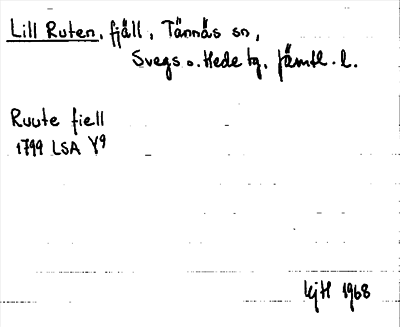 Lill Ruten, fjäll, Tännäs sn,
Svegs o. Hede tg, Jämtl. l.
Ruute fiell
1799 LSA Y9
KjH 1968